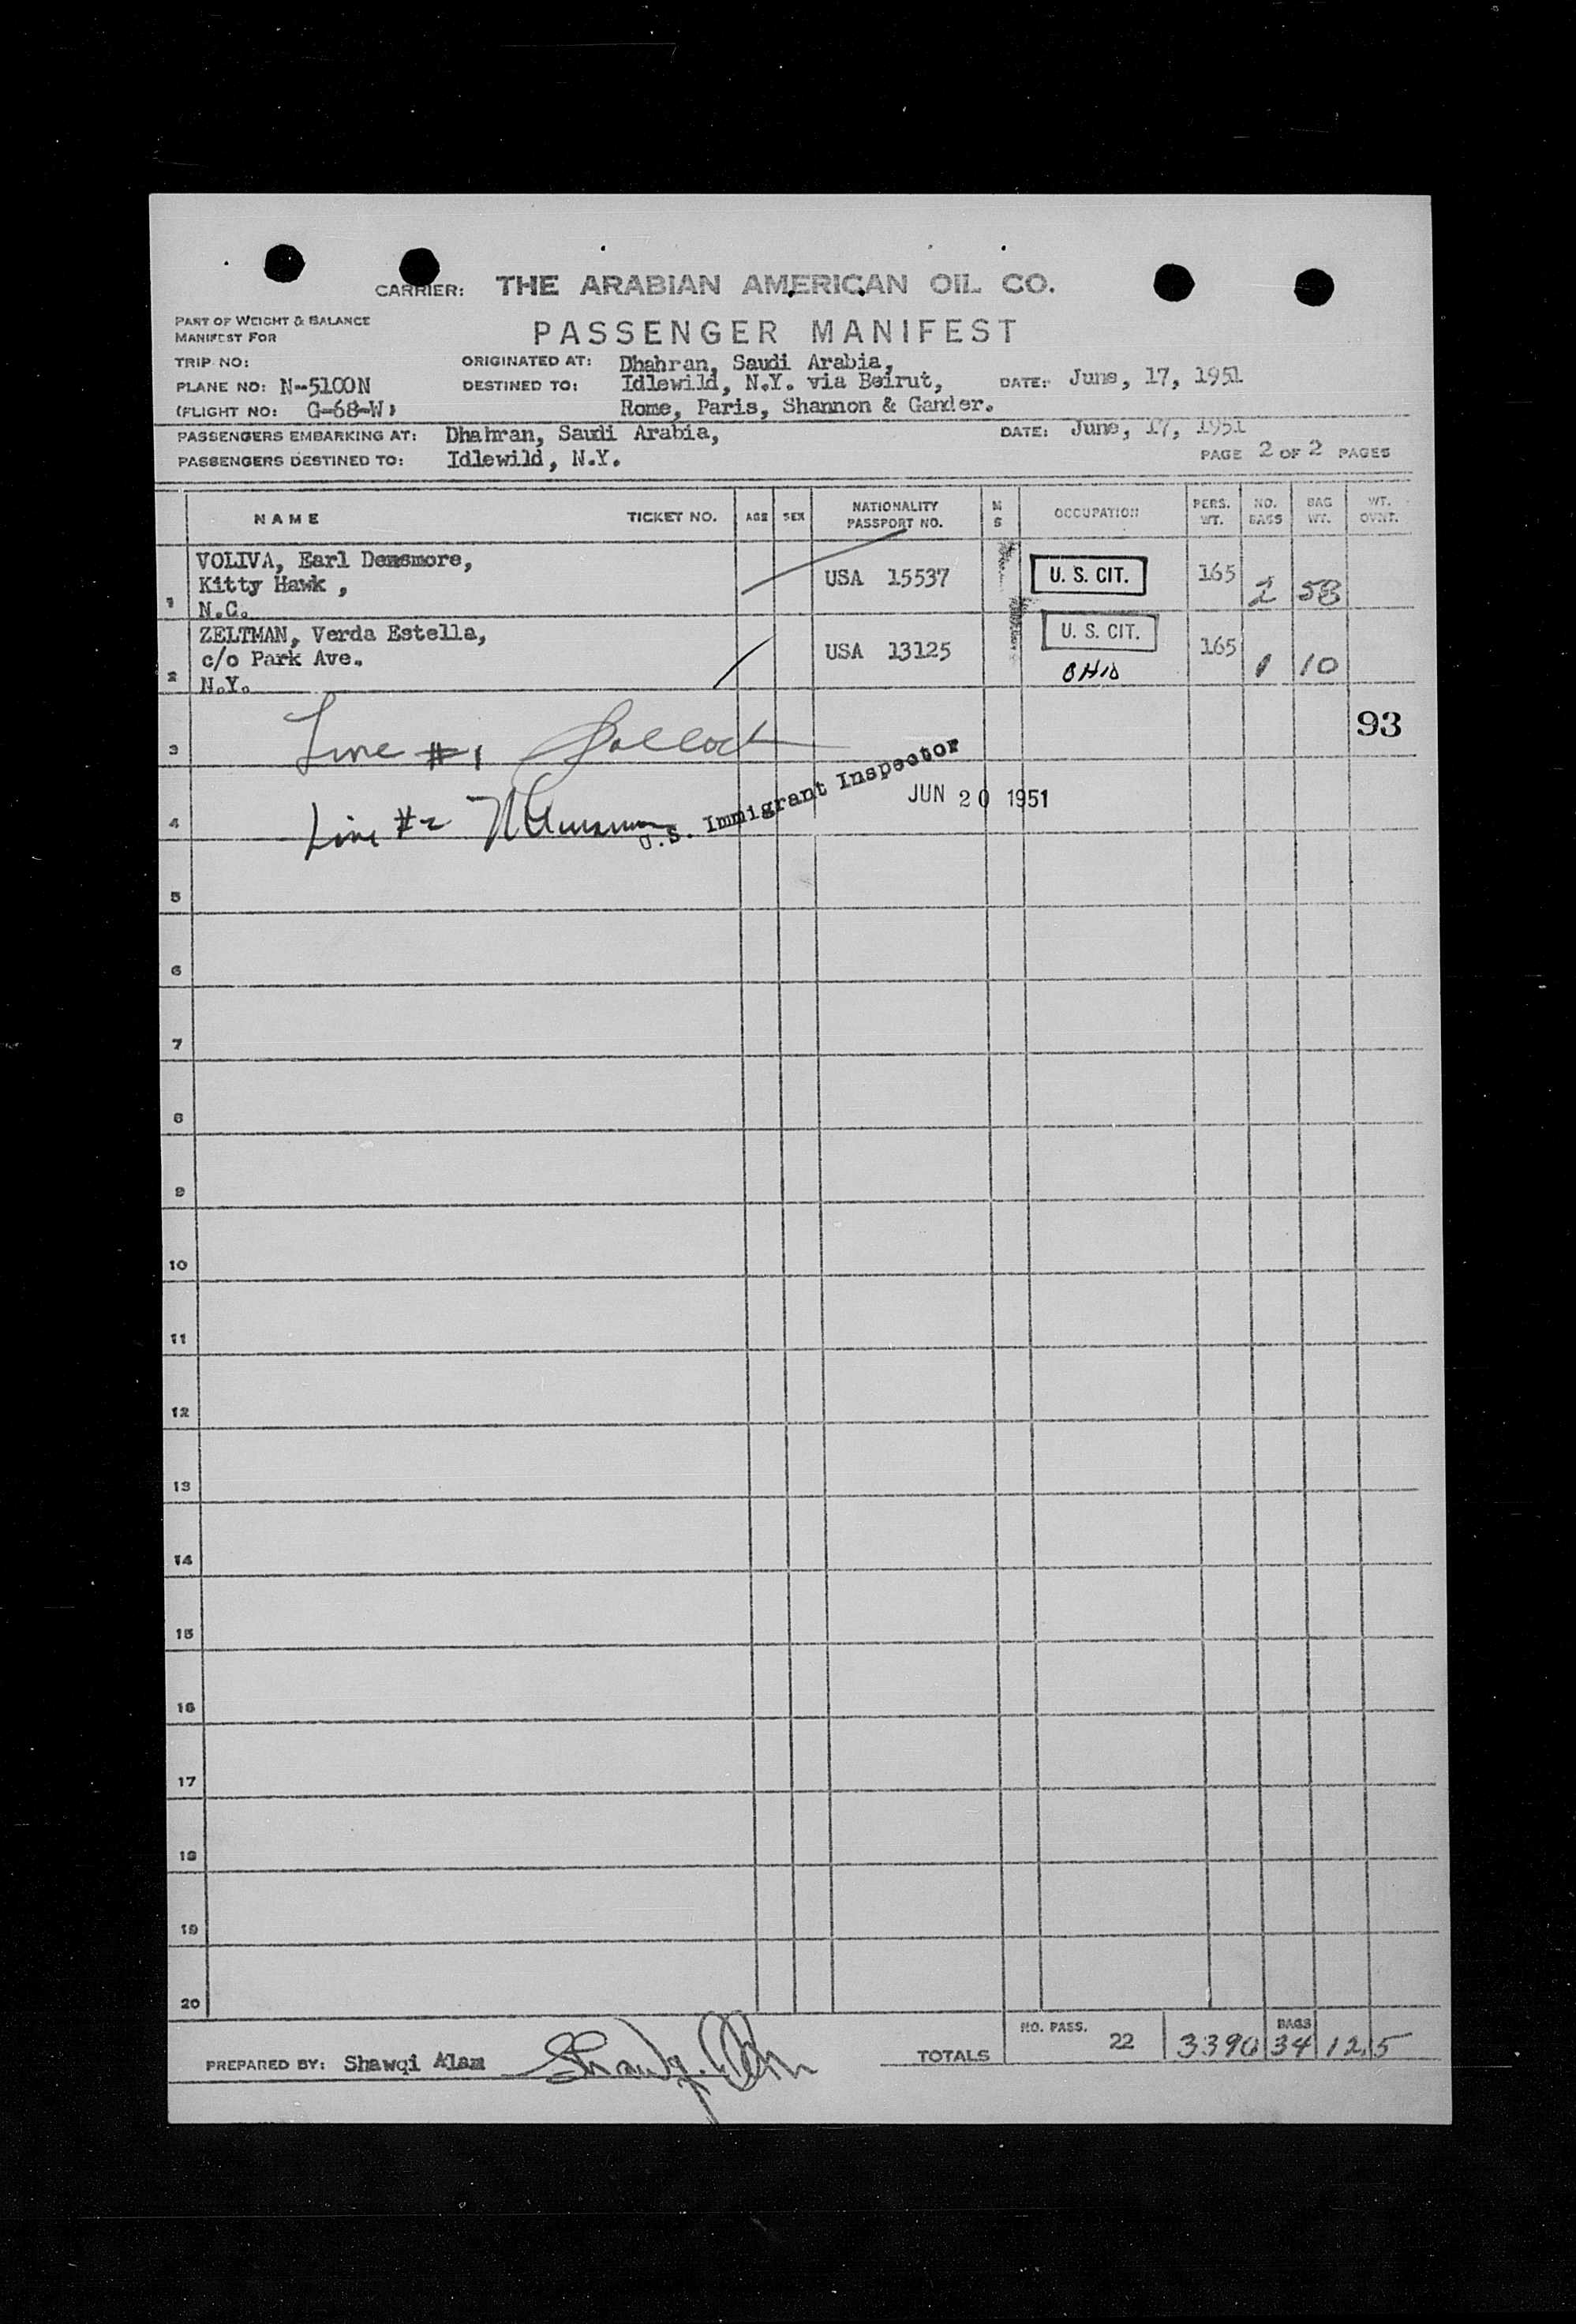 CARRIER: THE ARABIAN AMERICAN OIL CO.
PART OF WEIGHT & BALANCE
MANIFEST FOR
PASSENGER MANIFEST
TRIP NO:
ORIGINATED AT: Dhahran, Saudi Arabia,
PLANE NO: N-5100N
DESTINED TO: Idlewild, N.Y. via Beirut,
DATE: June, 17, 1951
(FLIGHT NO: G-68-W)
Rome, Paris, Shannon & Gander.
PASSENGERS EMBARKING AT: Dhahran, Saudi Arabia,
DATE: June, 17, 1951
PASSENGERS DESTINED TO: Idlewild, N.Y.
PAGE 2 OF 2 PAGES
NAME TICKET NO. AGE SEX NATIONALITY PASSPORT NO. M S OCCUPATION PERS. WT. NO. BAGS BAG WT. WT. OVNT.
VOLIVA, Earl Densmore,
Kitty Hawk , USA 15537 U. S. CIT. 165 2 58
1 N.C.
ZELTMAN, Verda Estella, U. S. CIT.
c/o Park Ave. USA 13125 165 1 10
2 N.Y. OHIO
93
3 Line #1
U.S. Immigrant Inspector
JUN 20 1951
4 Line #2
5
6
7
8
9
10
11
12
13
14
15
16
17
18
19
20
PREPARED BY: Shawqi Alam
TOTALS NO. PASS. 22 3390 BAGS 34 1215